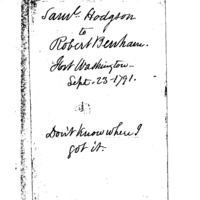 Saml. Hodgson
to
Robert Benham.
Fort Washington
Sept. 23-1791.
Don't know where I
got it.